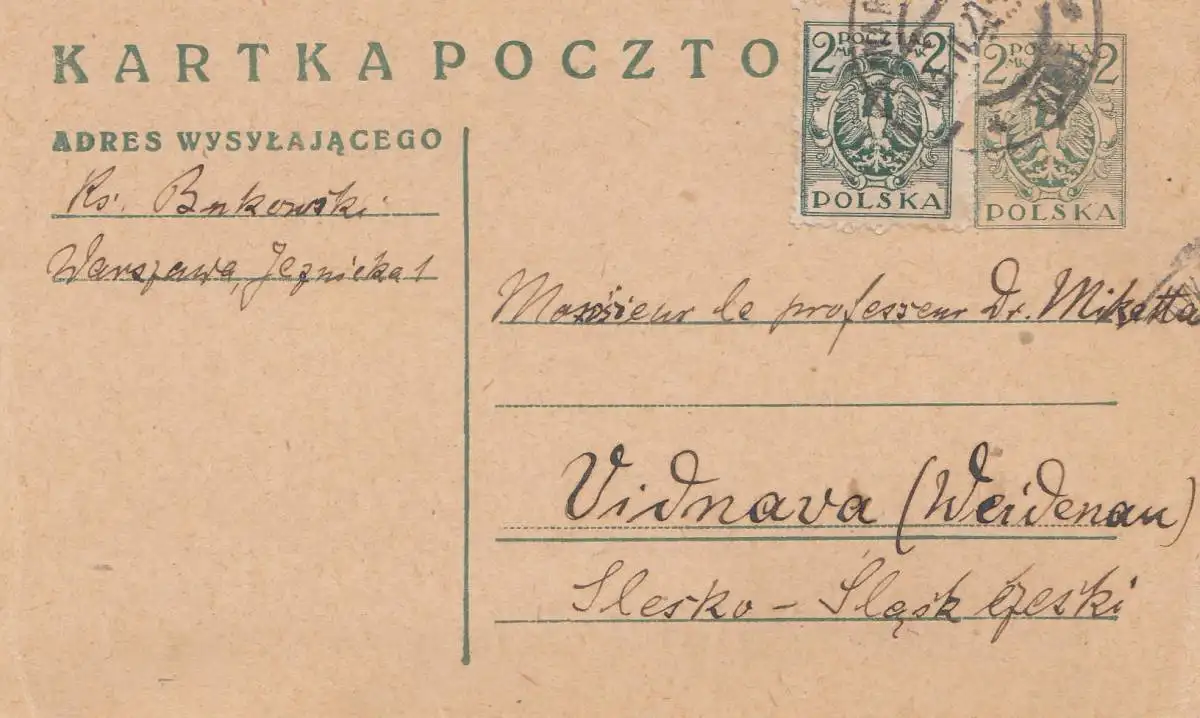 KARTKA POCZTO
2 POCZTA 2
MK MK
POLSKA
2 POCZTA 2
MK
POLSKA
ADRES WYSYŁAJĄCEGO
Ks. Bukowski
Warszawa, Jeznicka 1
Monsieur le professeur Dr. Miketta
Vidnava (Weidenau)
Slesko - Śląsk czeski